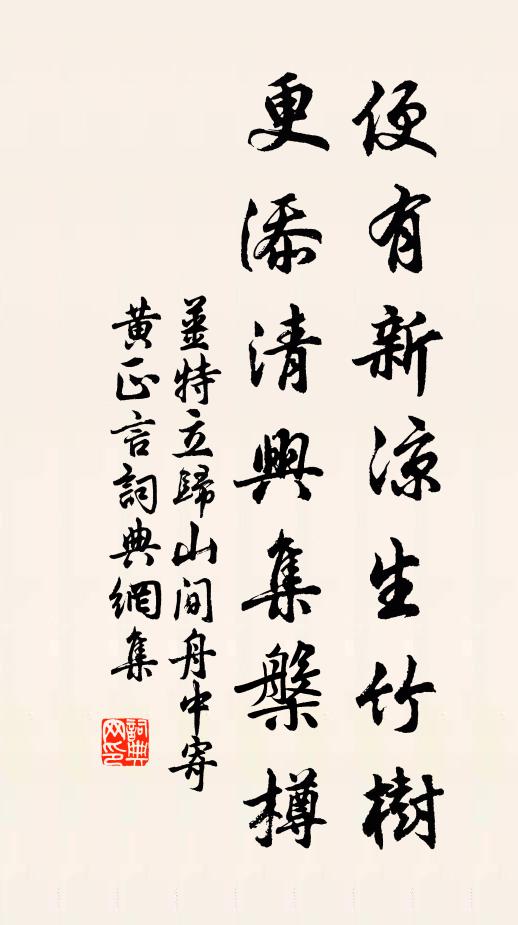 便有新涼生竹樹
更添清興集槃樽
薑特立歸山間舟中寄
黃正言詞典網集
詞典网印